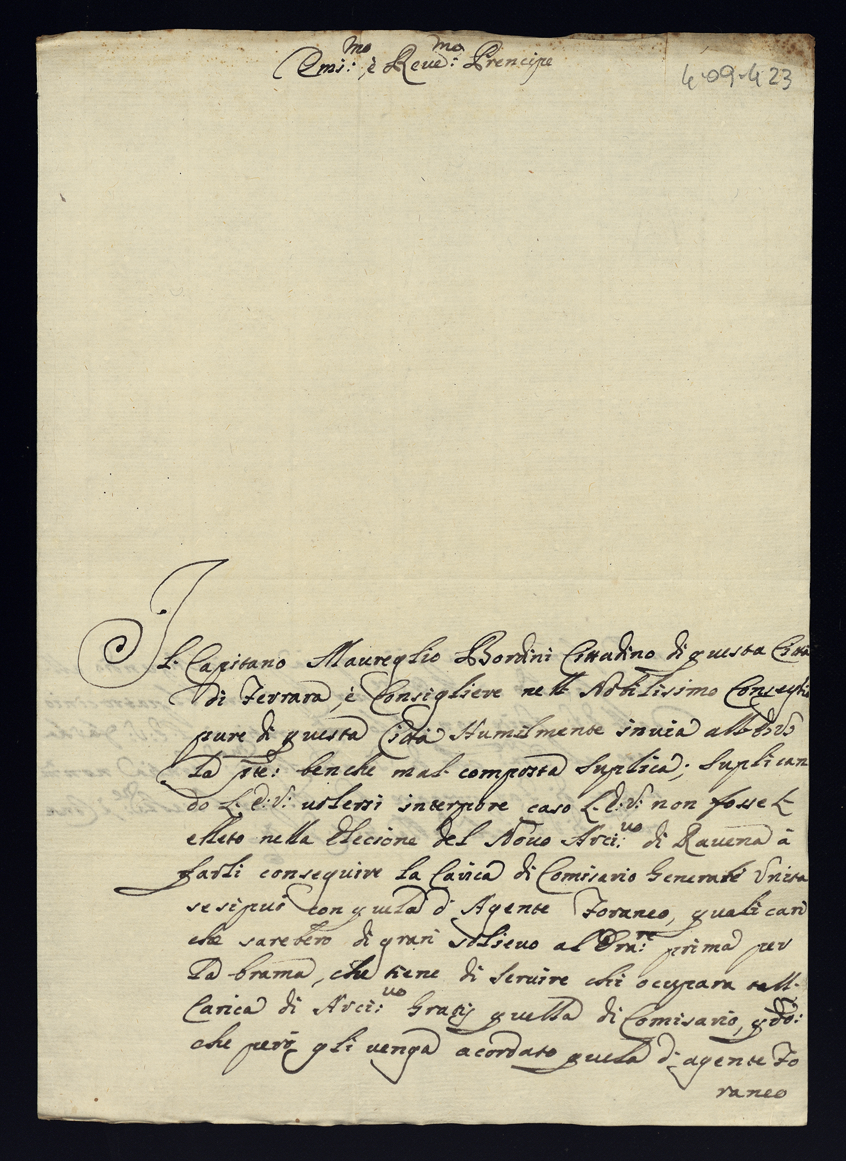 Emi:mo è Reue:mo Prencipe
4-09-423
Il Capitano Maureglio Bordini Cittadino di questa Citta
di Ferrara, è Consigliere nell Nobilissimo Conseglio
pure di questa Città Humilmente inuia all
La pte: benche mal composta Suplica; Suplican
do L.E.V. uolersi interpore caso L.E.V. non fosse L
elleto nella Elecione del Nouo Arci:uo di Rauena à
farli conseguire la Carica di Comisario Generale Unita
se si può con quela d Agente Foraneo, quali cari
che sarebero di gran solieuo al Ora:re prima per
La brama, che tiene di seruire chi ocupara tall.
Carica di Arci:uo Gratis quella di Comisario, qdo:
che però gli uenga acordato quela d agente Fo
raneo